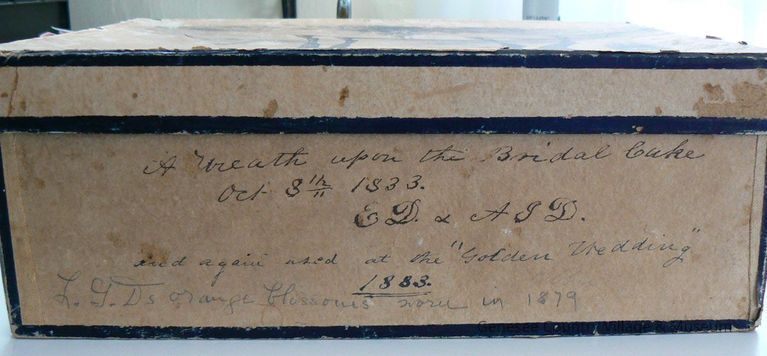 A Wreath upon the Bridal Cake
Oct 8th 1833.
E D. & A J D.
and again used at the "Golden Wedding"
1883.
L. G. D's orange blossoms worn in 1879
Genesee Country Village & Museum